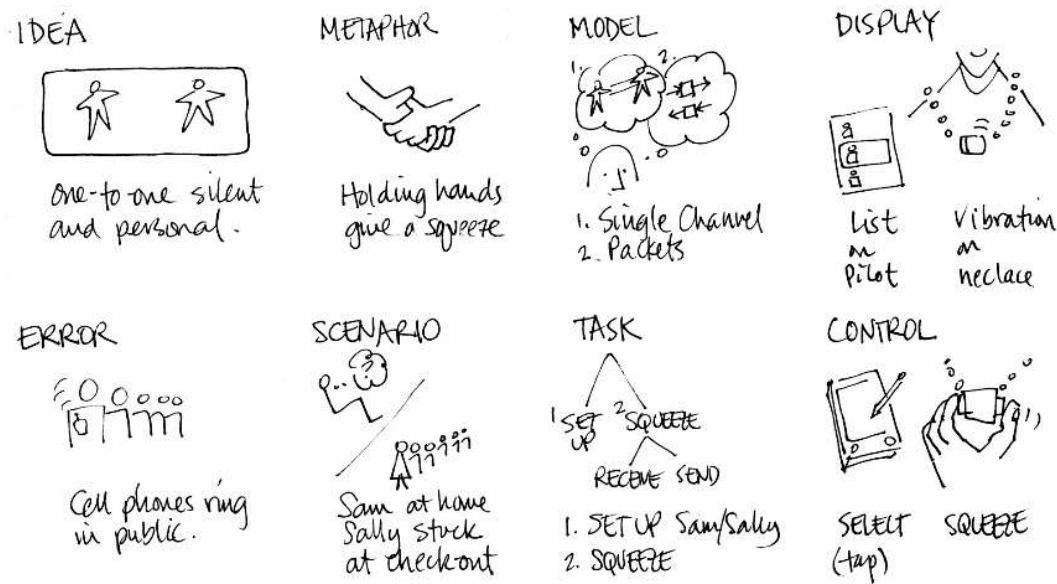 IDEA
one-to-one silent
and personal.
METAPHOR
Holding hands
give a squeeze
MODEL
1.
2.
1. Single Channel
2. Packets
DISPLAY
List
on
Pilot
Vibration
on
neclace
ERROR
Cell phones ring
in public.
SCENARIO
?
Sam at home
Sally stuck
at check-out
TASK
1 SET
UP
2 SQUEEZE
RECEIVE SEND
1. SET UP Sam/Sally
2. SQUEEZE
CONTROL
SELECT
(tap)
SQUEEZE